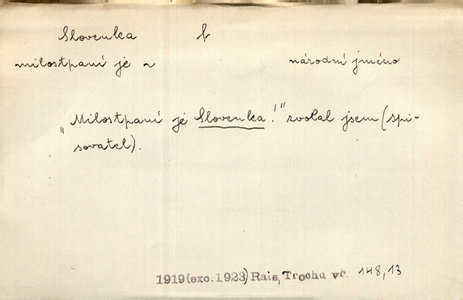 Slovenka f
milostpaní je ~ národní jméno
„Milostpaní je Slovenka!" zvolal jsem (spi-
sovatel).
1919 (exc. 1923) Rais, Trochu vř. 148,13